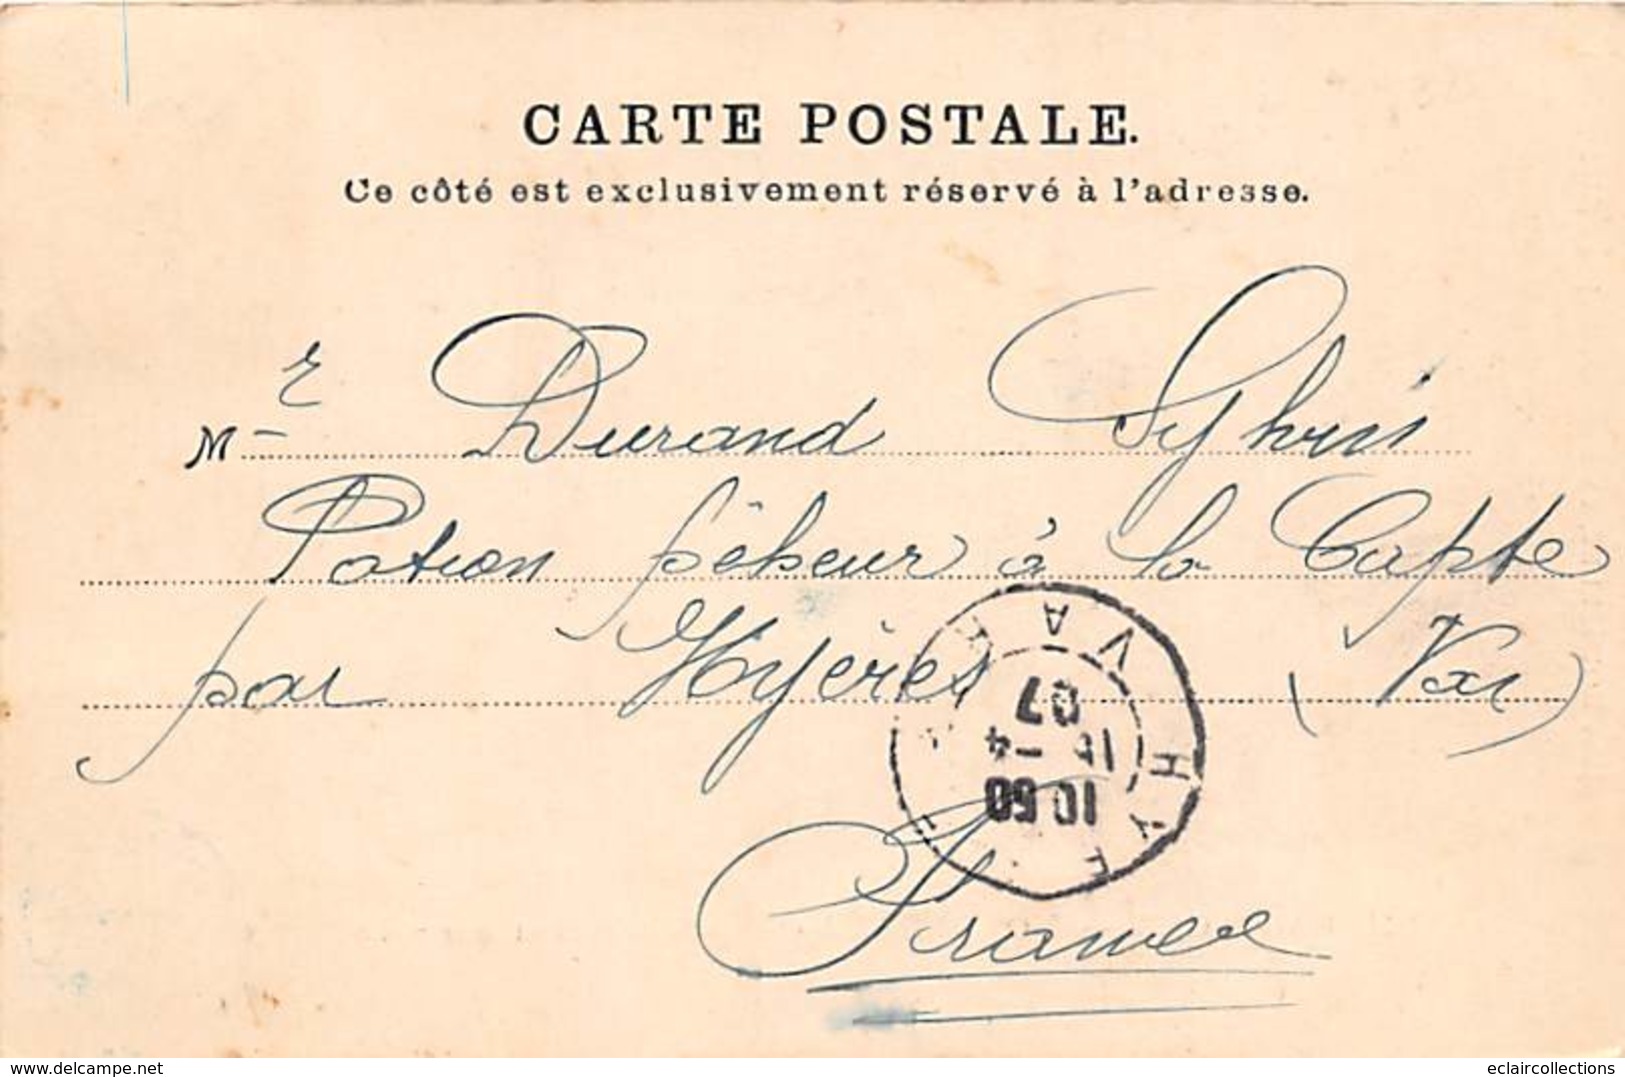 CARTE POSTALE.
Ce côté est exclusivement réservé à l'adresse.
Mr Durand Sylvin
Patron pêcheur à la Capte
par Hyères (Var)
France
HYE VAR
10 50
-4
07
delcampe.net
eclaircollections